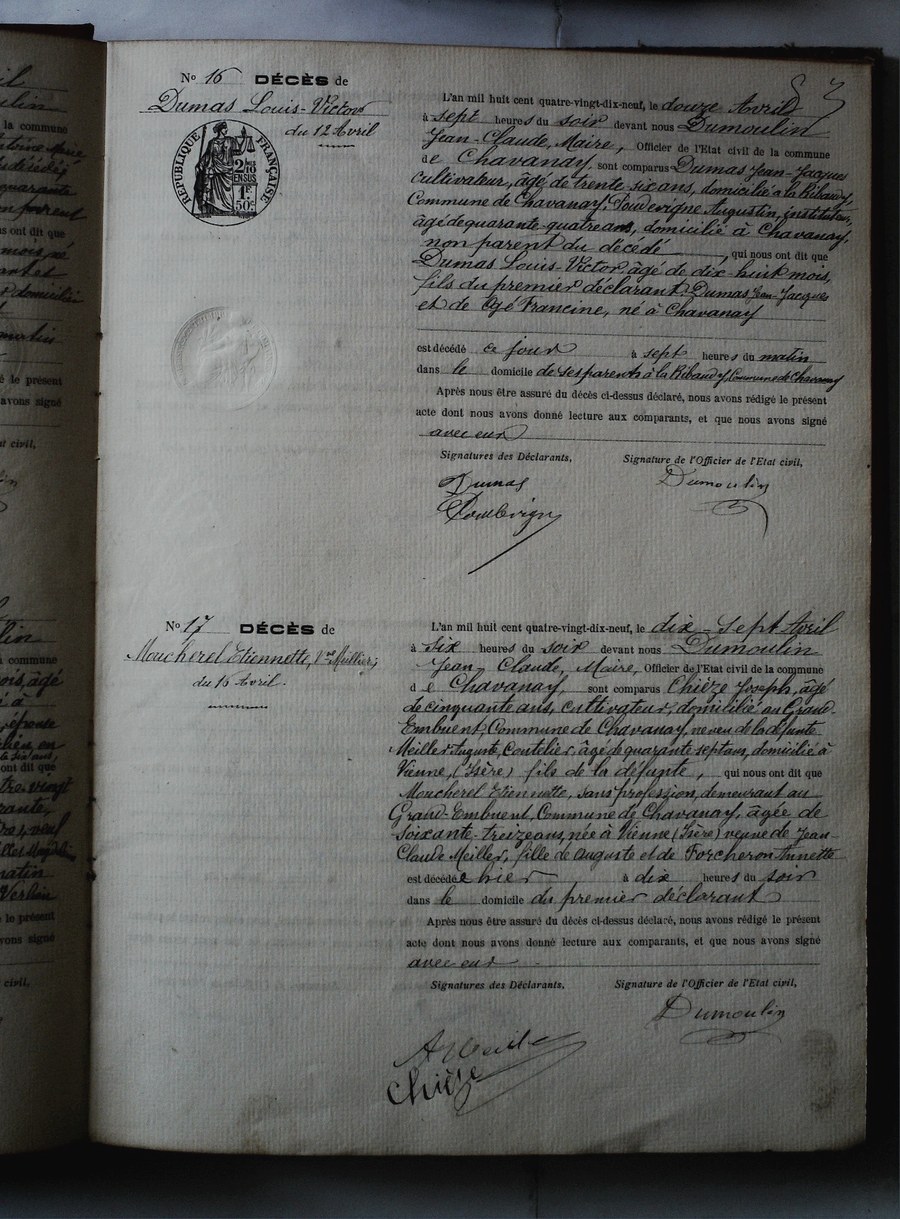 No 16 DÉCÈS de
Dumas Louis-Victor
du 12 Avril
RÉPUBLIQUE FRANÇAISE
2/10
EN SUS
1F
50c
L'an mil huit cent quatre-vingt-dix-neuf, le douze Avril
à sept heures du soir devant nous Dumoulin
Jean-Claude, Maire, Officier de l'Etat civil de la commune
de Chavanay, sont comparus Dumas Jean-Jacques
cultivateur, âgé de trente six ans, domicilié à la Ribaudy,
Commune de Chavanay, Augustin, instituteur,
âgé de quarante-quatre ans, domicilié à Chavanay,
non parent du décédé, qui nous ont dit que
Dumas Louis-Victor âgé de dix-huit mois,
fils du premier déclarant Dumas Jean-Jacques
et de Francine, né à Chavanay
est décédé ce jour à sept heures du matin
dans le domicile de ses parents à la Ribaudy, Commune de Chavanay
Après nous être assuré du décès ci-dessus déclaré, nous avons rédigé le présent
acte dont nous avons donné lecture aux comparants, et que nous avons signé
avec eux
Signatures des Déclarants, Signature de l'Officier de l'Etat civil,
Dumas Dumoulin
No 17 DÉCÈS de
Moucherel Etiennette, Vve Meiller,
du 16 Avril.
L'an mil huit cent quatre-vingt-dix-neuf, le dix-sept Avril
à six heures du soir devant nous Dumoulin
Jean Claude, Maire, Officier de l'Etat civil de la commune
de Chavanay, sont comparus Chièze Joseph, âgé
de cinquante ans, cultivateur, domicilié au Grand-
Embuent, Commune de Chavanay, neveu de la défunte
Meiller Auguste, Coutelier âgé de quarante sept ans, domicilié à
Vienne, (Isère) fils de la défunte, qui nous ont dit que
Moucherel Etiennette, sans profession, demeurant au
Grand-Embuent, Commune de Chavanay, âgée de
soixante-treize ans, née à Vienne (Isère) veuve de Jean-
Claude Meiller, fille de Auguste et de Forcheron Annette
est décédée hier à dix heures du soir
dans le domicile du premier déclarant
Après nous être assuré du décès ci-dessus déclaré, nous avons rédigé le présent
acte dont nous avons donné lecture aux comparants, et que nous avons signé
avec eux
Signatures des Déclarants, Signature de l'Officier de l'Etat civil,
Dumoulin
Chièze